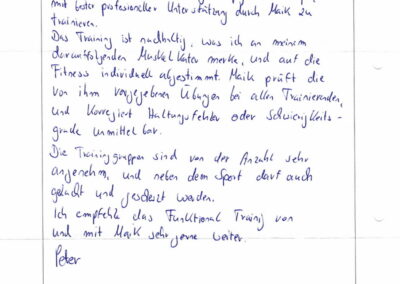 mit bester profesioneller Unterstützung durch Maik zu
trainieren.
Das Training ist nachhaltig, was ich an meinem
darauffolgenden Muskelkater merke, und auf die
Fitness individuell abgestimmt. Maik prüft die
von ihm vorgegebenen Übungen bei allen Trainierenden,
und korregiert Haltungsfehler oder Schwierigkeits-
grade unmittelbar.
Die Trainingsgruppen sind von der Anzahl sehr
angenehm, und neben dem Sport darf auch
gelacht und gescherzt werden.
Ich empfehle das Funktional Trainig von
und mit Maik sehr gerne weiter.
Peter